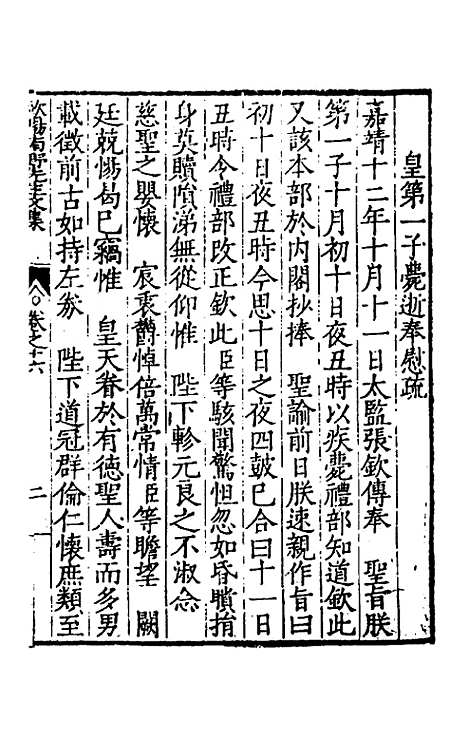 皇第一子薨逝奉慰疏
嘉靖十二年十月十一日太監張欽傳奉　聖旨朕
第一子十月初十日夜丑時以疾薨禮部知道欽此
又該本部於内閣抄捧　聖諭前日朕速親作旨曰
初十日夜丑時今思十日之夜四鼓已合曰十一日
丑時令禮部改正欽此臣等駭聞驚怛忽如昏聵捐
身莫贖隕涕無從仰惟　陛下軫元良之不淑念
慈聖之嬰懷　宸衷欝悼倍萬常情臣等瞻望　闕
廷兢惕曷已竊惟　皇天眷於有德聖人壽而多男
載徵前古如持左券　陛下道冠群倫仁懷庶類至
歐陽南野先生文集
卷之十六
二